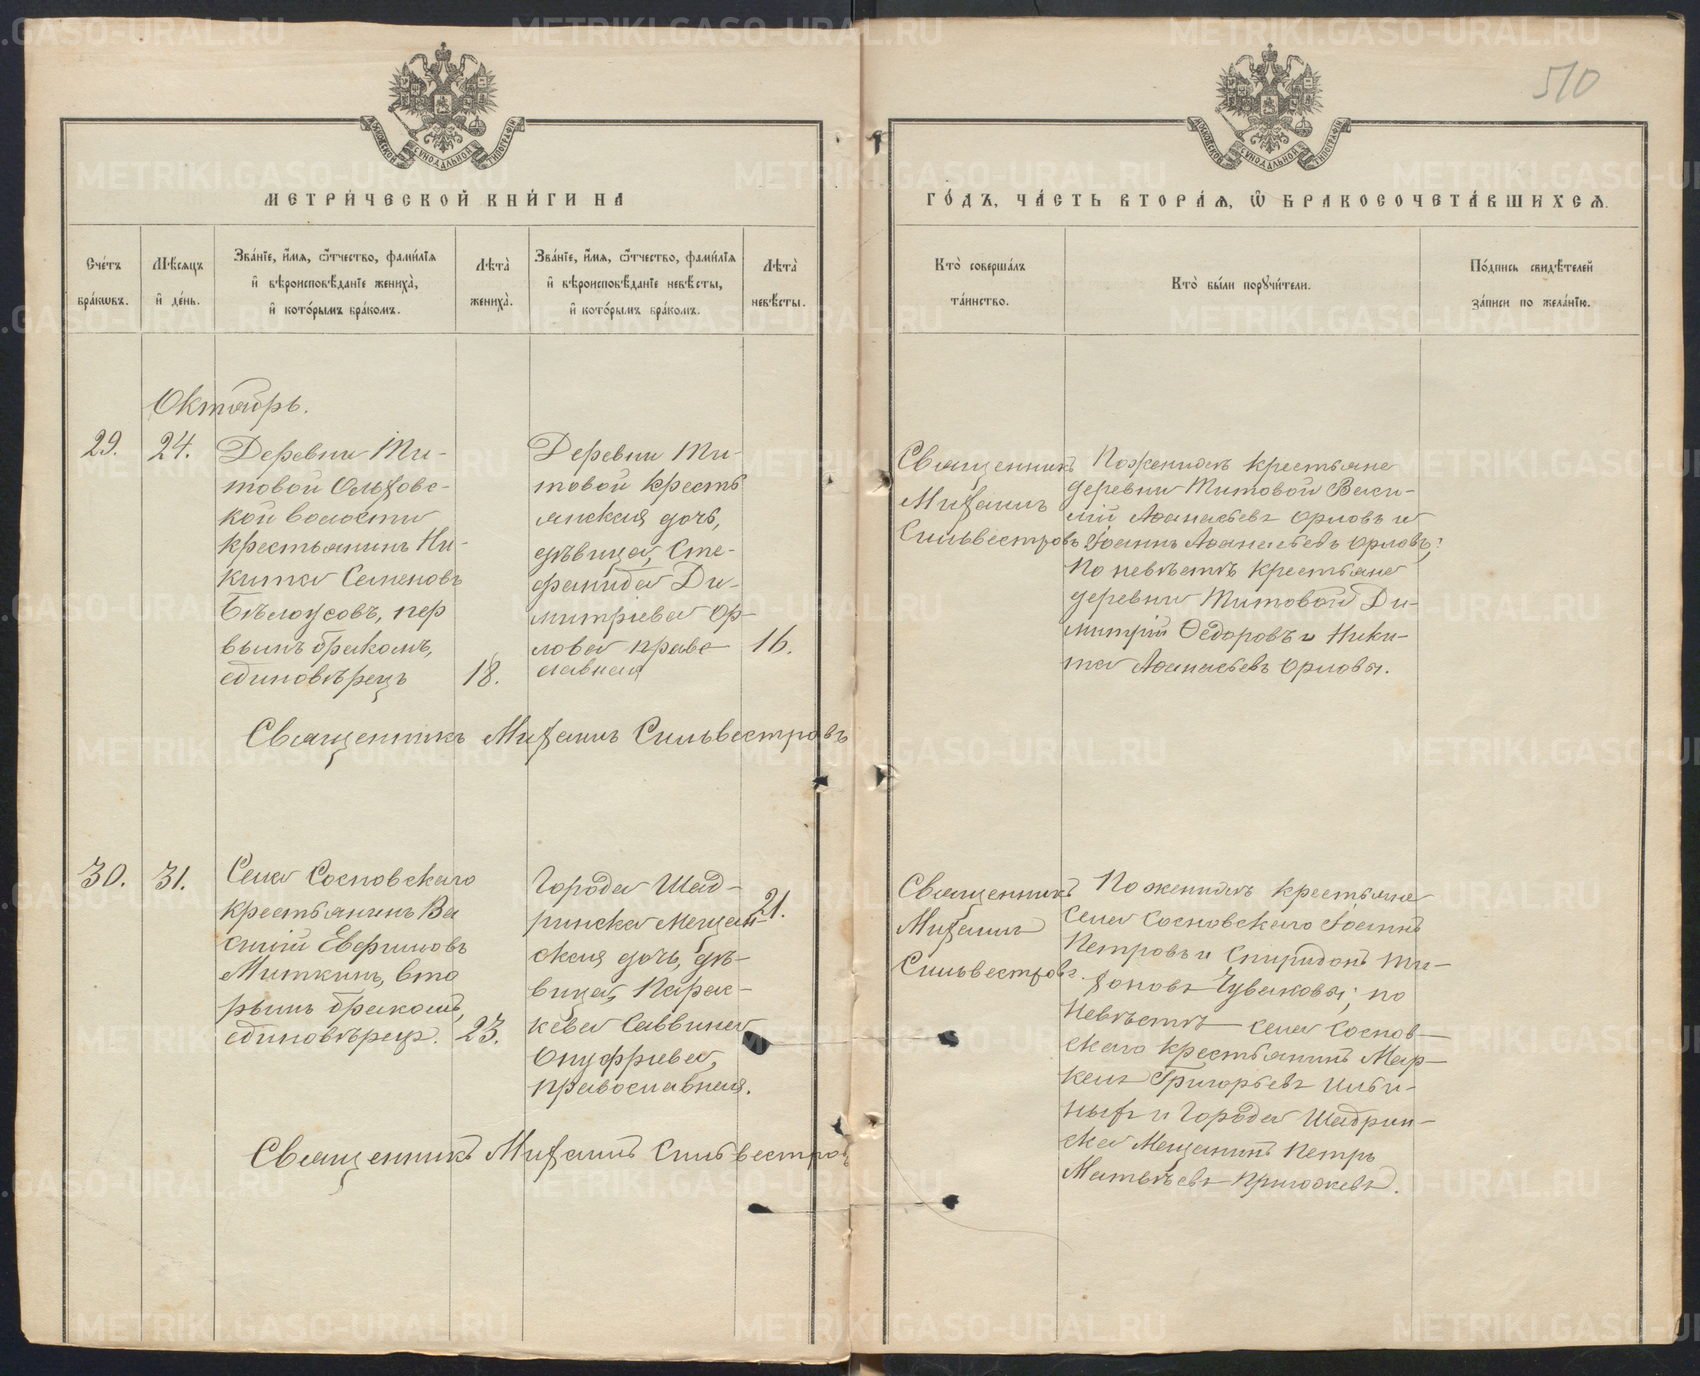 510
МОСКОВСКОЙ СѴНОДАЛЬНОЙ ТИПОГРАФІИ
МОСКОВСКОЙ СѴНОДАЛЬНОЙ ТИПОГРАФІИ
МЕТРИ́ЧЕСКОЙ КНИ́ГИ НА
ГО́ДЪ, ЧА́СТЬ ВТОРА́Ѧ, Ѡ҆ БРАКОСОЧЕТА́ВШИХСѦ.
Сче́тъ
бра́кѡвъ.
Мѣ́сѧцъ
и҆ де́нь.
Зва́нїе, и҆́мѧ, ѻ҆́тчество, фами́лїѧ
и҆ вѣроисповѣ́данїе жениха̀,
и҆ кото́рымъ бра́комъ.
Лѣта̀
жениха̀.
Зва́нїе, и҆́мѧ, ѻ҆́тчество, фами́лїѧ
и҆ вѣроисповѣ́данїе невѣ́сты,
и҆ кото́рымъ бра́комъ.
Лѣта̀
невѣ́сты.
Кто̀ соверша́лъ
та́инство.
Кто̀ бы́ли порꙋчи́тели.
По́дпись свидѣ́телей
за́писи по жела́нїю.
Октябрь.
29.
24.
Деревни Ти-
товой Ольховс-
кой волости
крестьянинъ Ни-
кита Семеновъ
Бѣлоусовъ, пер
вымъ бракомъ,
единовѣрецъ
18.
Деревни Ти-
товой кресть
янская дочь,
дѣвица, Сте-
фанида Ди-
митріева Ор-
лова право
славная
16.
Священникъ
Михаилъ
Сильвестровъ
По женихѣ крестьяне
деревни Титовой Васи-
лій Аѳанасьевъ Орловъ и
Іоаннъ Аѳанасьевъ Орловъ;
По невѣстѣ крестьяне
деревни Титовой Ди-
митрій Ѳедоровъ и Ники-
та Аѳанасьевъ Орловы.
Священникъ Михаилъ Сильвестровъ
30.
31.
Села Сосновскаго
крестьянинъ Ва
силій Евфимовъ
Миткинъ, вто
рымъ бракомъ,
единовѣрецъ.
23.
Города Шад-
ринска Мещан-
ская дочь, дѣ-
вица, Парас-
кева Саввина
Онуфріева,
православная.
21.
Священникъ
Михаилъ
Сильвестровъ.
По женихѣ крестьяне
Села Сосновскаго Іоаннъ
Петровъ и Спиридонъ Ти-
хоновъ Чуваковы; по
невѣстѣ села Соснов-
скаго крестьянинъ Мар-
келъ Григорьевъ Ильи-
ныхъ и Города Шадрин-
ска Мещанинъ Петръ
Матвѣевъ
Священникъ Михаилъ Сильвестровъ
METRIKI.GASO-URAL.RU